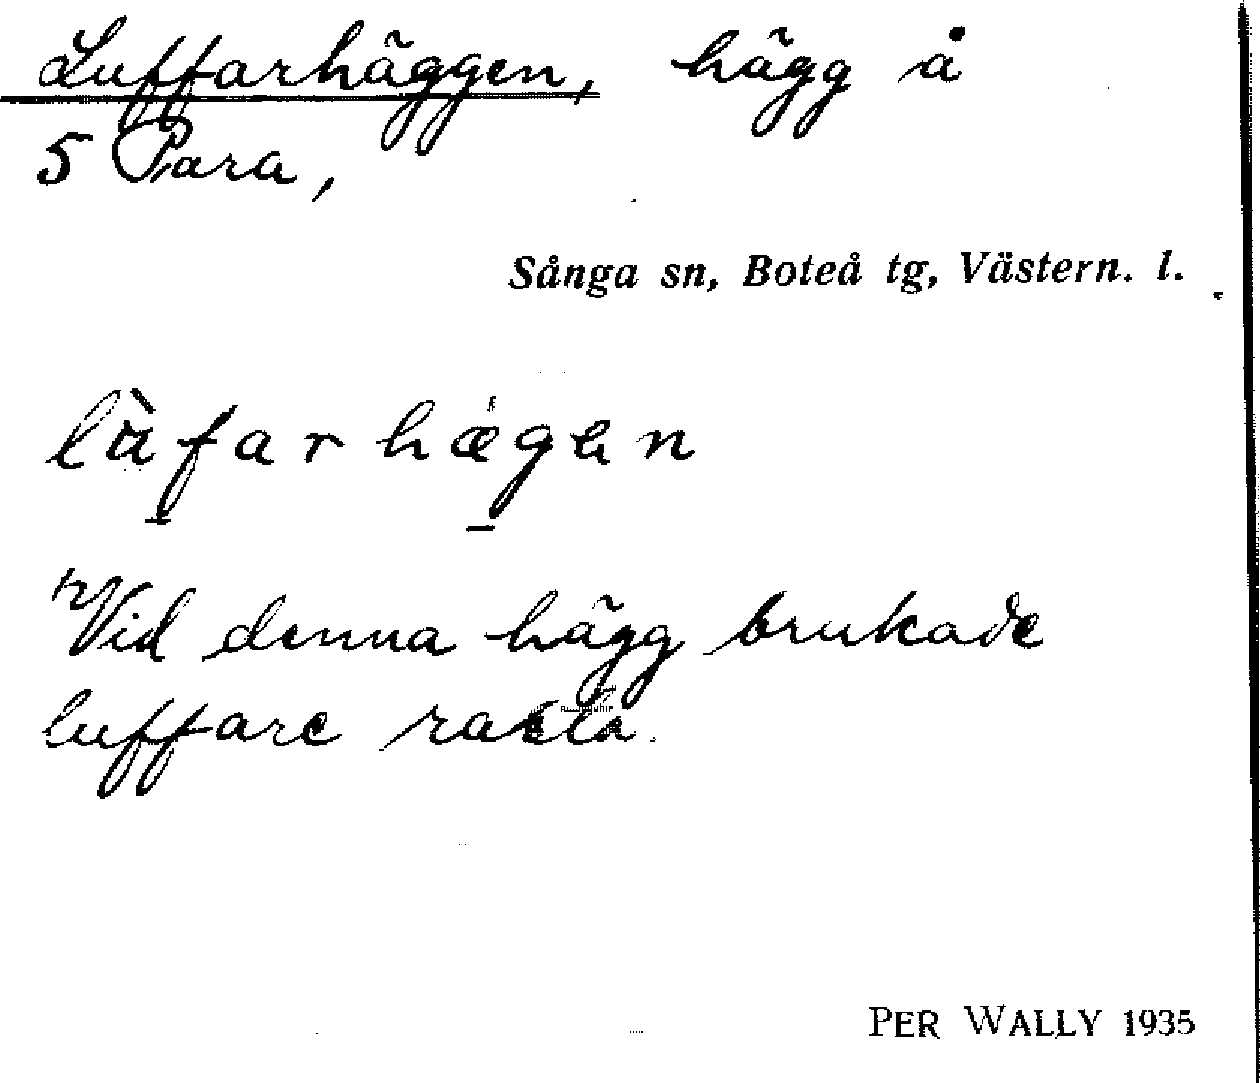 Luffarhäggen, hägg å
5 Para,
Sånga sn, Boteå tg, Västern. l.
lùfarhægen
Vid denna hägg brukade
luffare rasta.
PER WALLY 1935